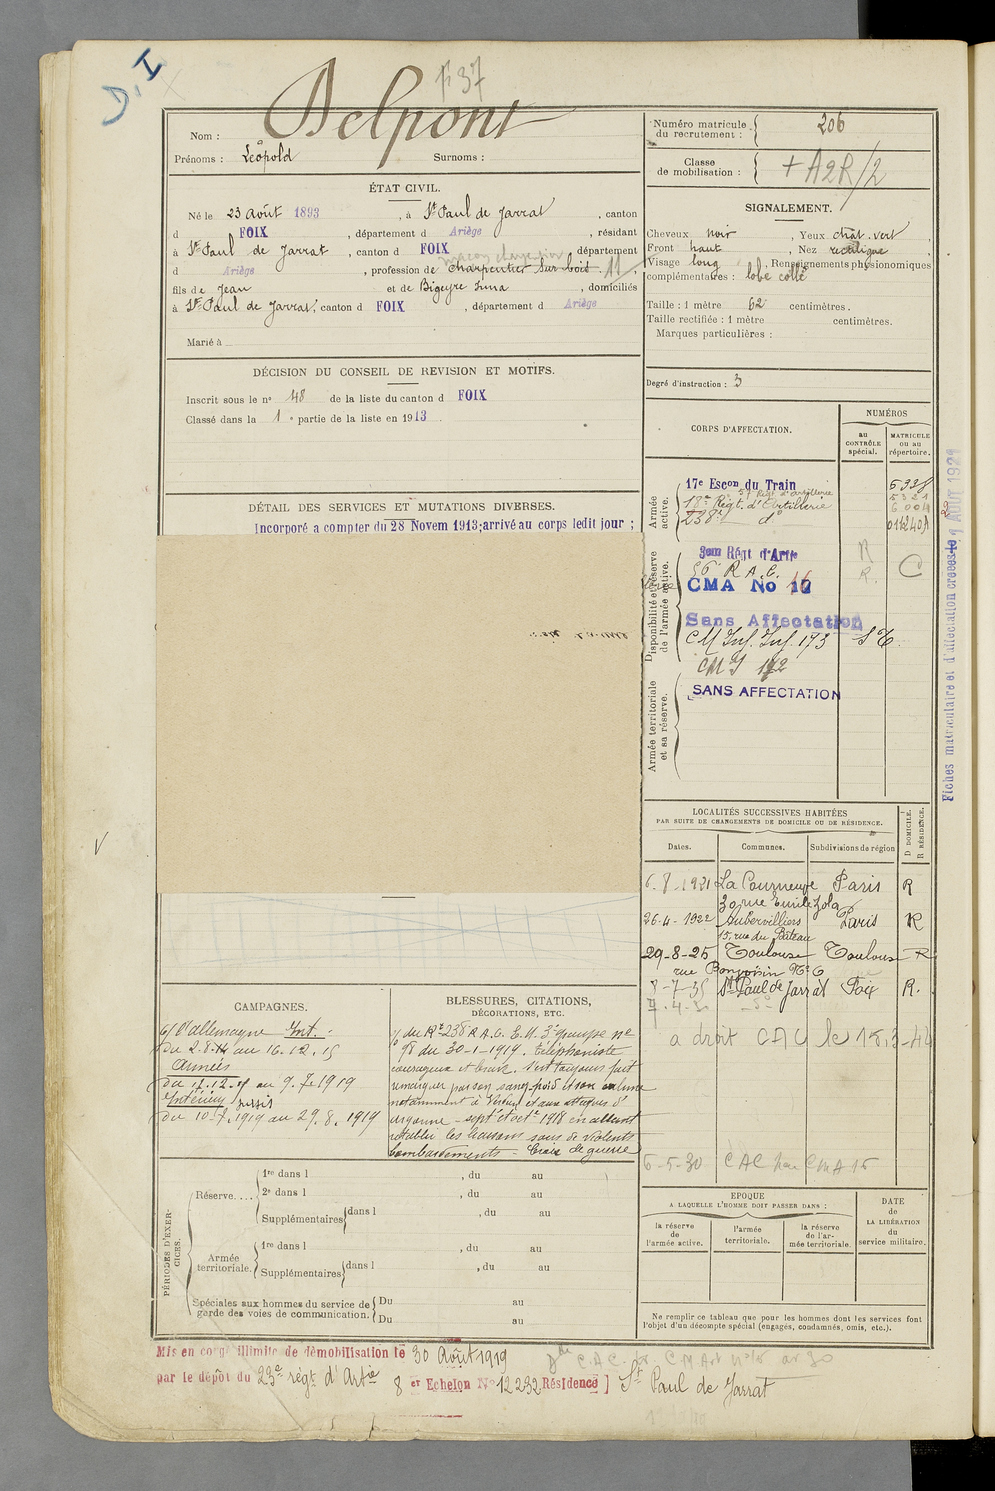 D.I
F 37
Nom : Delpont
Prénoms : Léopold Surnoms :
Numéro matricule du recrutement : 206
Classe de mobilisation : + A2R/2
ÉTAT CIVIL.
Né le 23 Août 1893, à St Paul de Jarrat, canton
d FOIX, département d Ariège, résidant
à St Paul de Jarrat, canton d FOIX, département
d Ariège, profession de charpentier sur bois
fils de Jean et de Bigeyre, domiciliés
à St Paul de Jarrat, canton d FOIX, département d Ariège
Marié à
SIGNALEMENT.
Cheveux noir, Yeux chât. vert,
Front haut, Nez rectiligne,
Visage long, Renseignements physionomiques
complémentaires : lobe collé
Taille : 1 mètre 62 centimètres.
Taille rectifiée : 1 mètre centimètres.
Marques particulières :
Degré d'instruction : 3
DÉCISION DU CONSEIL DE REVISION ET MOTIFS.
Inscrit sous le n° 48 de la liste du canton d FOIX
Classé dans la 1e partie de la liste en 1913
DÉTAIL DES SERVICES ET MUTATIONS DIVERSES.
Incorporé a compter du 28 Novem 1913; arrivé au corps ledit jour ;
CORPS D'AFFECTATION.
NUMÉROS
au CONTRÔLE spécial.
MATRICULE ou au répertoire.
Armée active.
17e Escon du Train
18e Régt. d'Artillerie
57 Régt d'artillerie
238e d°
5328
5321
Disponibilité et réserve de l'armée active.
3em Régt d'Artie
56 R.A.C. R.
CMA No 16
C
Sans Affectation
CM Inf. Inf. 173
CMI 172
Armée territoriale et sa réserve.
SANS AFFECTATION
Fiches matriculaire et d'affectation créées le 1 AOUT 1921
LOCALITÉS SUCCESSIVES HABITÉES
PAR SUITE DE CHANGEMENTS DE DOMICILE OU DE RÉSIDENCE.
D DOMICILE. R RÉSIDENCE.
Dates. Communes. Subdivisions de région
6.8.1921 La Courneuve Paris R
30 rue Emile Zola
26-4-1922 Aubervilliers Paris R
15, rue du Bateau
29-8-25 Toulouse Toulouse R
rue Bonvoisin N° 6
8-7-35 St Paul de Jarrat Foix R.
a droit CAC le 18.3-44
6-5-30 CAC par CMA 16
CAMPAGNES.
c/ l'allemagne Int. :
du 2.8.14 au 16.12.15
Armées
du 17.12.15 au 9.7.1919
Intérieur
du 10.7.1919 au 29.8.1919
BLESSURES, CITATIONS, DÉCORATIONS, ETC.
du Rt 238 R.A.C. E.M. 3e Groupe n°
98 du 30-1-1919. téléphoniste
courageux et brave. s'est toujours fait
remarquer par son sang froid et son calme
notamment à Verdun et aux attaques d'
argonne - sept et octe 1918 en allant
rétablir les liaisons sous de violents
bombardements - Croix de guerre
PÉRIODES D'EXERCICES.
Réserve....
1re dans l , du au
2e dans l , du au
Supplémentaires dans l , du au
Armée territoriale.
1re dans l , du au
Supplémentaires dans l , du au
Spéciales aux hommes du service de garde des voies de communication.
Du au
Du au
EPOQUE
A LAQUELLE L'HOMME DOIT PASSER DANS :
la réserve de l'armée active.
l'armée territoriale.
la réserve de l'armée territoriale.
DATE de LA LIBÉRATION du service militaire.
Ne remplir ce tableau que pour les hommes dont les services font
l'objet d'un décompte spécial (engagés, condamnés, omis, etc.).
Mis en congé illimité de démobilisation le 30 Août 1919
par le dépot du 23e régt d'Artie 8 er Echelon N° 12232 Résidence] St Paul de Jarrat